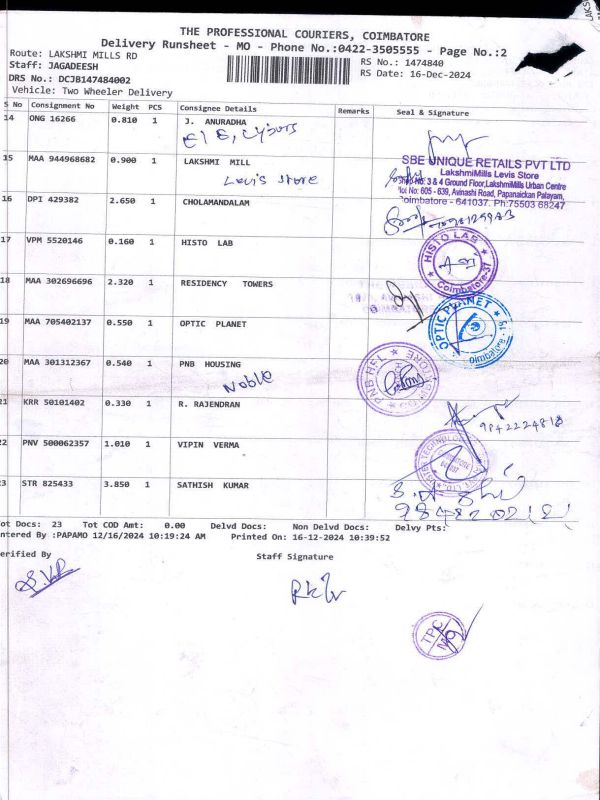 THE PROFESSIONAL COURIERS, COIMBATORE
Delivery Runsheet - MO - Phone No.:0422-3505555 - Page No.:2
Route: LAKSHMI MILLS RD
Staff: JAGADEESH
RS No.: 1474840
DRS No.: DCJB147484002
RS Date: 16-Dec-2024
Vehicle: Two Wheeler Delivery
S No Consignment No Weight PCS Consignee Details Remarks Seal & Signature
14 ONG 16266 0.810 1 J. ANURADHA
15 MAA 944968682 0.900 1 LAKSHMI MILL
Levis store
SBE UNIQUE RETAILS PVT LTD
LakshmiMills Levis Store
No: 3 & 4 Ground Floor,LakshmiMills Urban Centre
No: 605 - 639, Avinashi Road, Papanaickan Palayam,
Coimbatore - 641037. Ph:75503 68247
16 DPI 429382 2.650 1 CHOLAMANDALAM
17 VPM 5520146 0.160 1 HISTO LAB
HISTO LAB
Coimbatore-37
18 MAA 302696696 2.320 1 RESIDENCY TOWERS
19 MAA 705402137 0.550 1 OPTIC PLANET
OPTIC PLANET
Coimbatore - 18
20 MAA 301312367 0.540 1 PNB HOUSING
Noble
PNB HFL
21 KRR 50101402 0.330 1 R. RAJENDRAN
9842224818
22 PNV 500062357 1.010 1 VIPIN VERMA
23 STR 825433 3.850 1 SATHISH KUMAR
Tot Docs: 23 Tot COD Amt: 0.00 Delvd Docs: Non Delvd Docs: Delvy Pts:
Entered By :PAPAMO 12/16/2024 10:19:24 AM Printed On: 16-12-2024 10:39:52
Verified By Staff Signature
S.V.R
TPC
MO